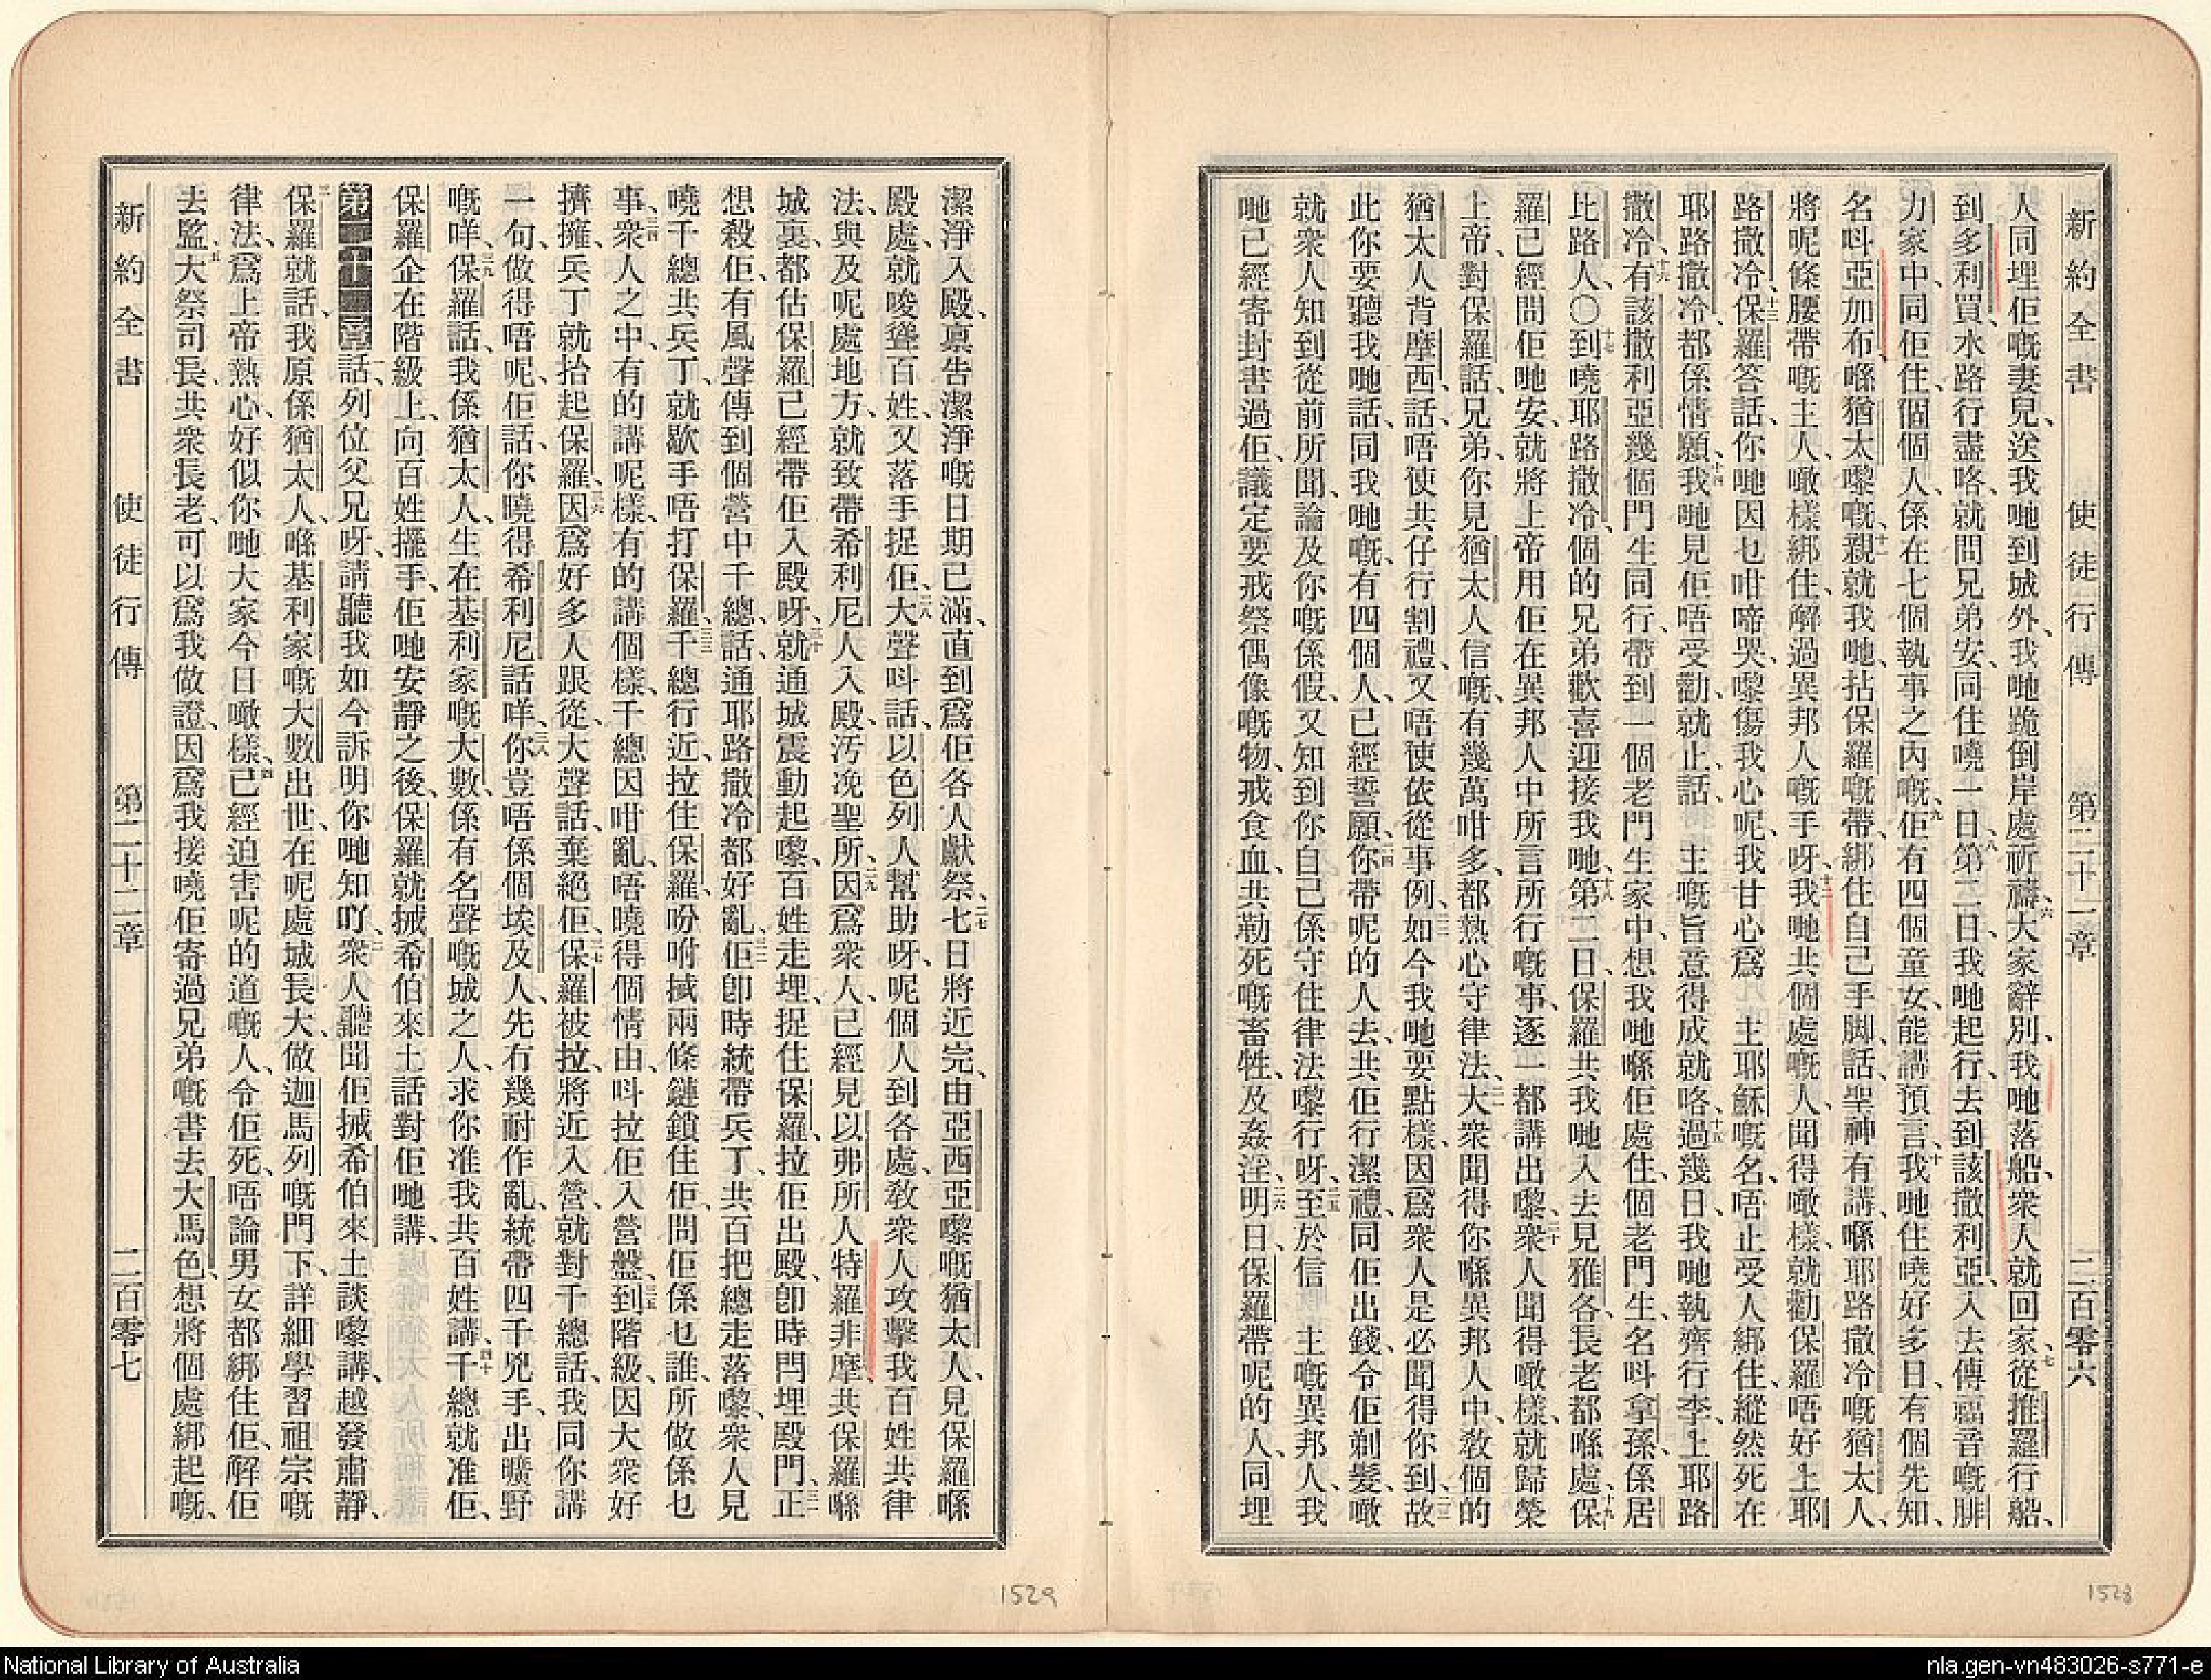 新約全書 使徒行傳 第二十一章 二百零六
人同埋佢嘅妻兒、送我哋到城外、我哋跪倒岸處祈禱、六大家辭別、我哋落船、衆人就回家、七從推羅行船、
到多利買、水路行盡咯、就問兄弟安、同住嘵一日、八第二日、我哋起行、去到該撒利亞、入去傳福音嘅腓
力家中、同佢住、個個人、係在七個執事之內嘅、九佢有四個童女、能講預言、十我哋住嘵好多日、有個先知、
名呌亞加布、喺猶太嚟嘅、十一親就我哋、拈保羅嘅帶、綁住自己手脚、話、聖神有講、喺耶路撒冷嘅猶太人、
將呢條腰帶嘅主人、噉樣綁住、解過異邦人嘅手呀、十二我哋共個處嘅人、聞得噉樣、就勸保羅唔好上耶
路撒冷、十三保羅答話、你哋因乜咁啼哭、嚟傷我心呢、我甘心爲 主耶穌嘅名、唔止受人綁住、縱然死在
耶路撒冷、都係情願、十四我哋見佢唔受勸、就止話、 主嘅旨意得成就咯、十五過幾日、我哋執齊行李、上耶路
撒冷、十六有該撒利亞幾個門生同行、帶到一個老門生家中、想我哋喺佢處住、個老門生、名呌拿孫、係居
比路人、〇十七到嘵耶路撒冷、個的兄弟歡喜迎接我哋、十八第二日、保羅共我哋入去見雅各、長老都喺處、十九保
羅已經問佢哋安、就將上帝用佢在異邦人中所言所行嘅事、逐一都講出嚟、二十衆人聞得噉樣、就歸榮
上帝、對保羅話、兄弟、你見猶太人信嘅、有幾萬咁多、都熱心守律法、二一大衆聞得你喺異邦人中、敎個的
猶太人背摩西、話、唔使共仔行割禮、又唔使依從事例、二二如今我哋要點樣、因爲衆人是必聞得你到、二三故
此你要聽我哋話、同我哋嘅、有四個人、已經誓願、二四你帶呢的人去、共佢行潔禮、同佢出錢、令佢剃髮、噉
就衆人知到從前所聞、論及你嘅係假、又知到你自己係守住律法嚟行呀、二五至於信 主嘅異邦人、我
哋已經寄封書過佢、議定要戒祭偶像嘅物、戒食血、共勒死嘅畜牲、及姦淫、二六明日、保羅帶呢的人、同埋
1528
潔淨入殿、禀告潔淨嘅日期已滿、直到爲佢各人獻祭、二七七日將近完、由亞西亞嚟嘅猶太人、見保羅喺
殿處、就唆聳百姓、又落手捉佢、二八大聲呌話、以色列人幫助呀、呢個人到各處、敎衆人攻擊我百姓共律
法、與及呢處地方、就致帶希利尼人入殿、汚浼聖所、二九因爲衆人、已經見以弗所人特羅非摩、共保羅喺
城裏、都估保羅已經帶佢入殿呀、三十就通城震動起嚟、百姓走埋、捉住保羅、拉佢出殿、卽時閂埋殿門、三一正
想殺佢、有風聲傳到個營中千總、話、通耶路撒冷都好亂、三二佢卽時統帶兵丁、共百把總走落嚟、衆人見
嘵千總共兵丁、就歇手唔打保羅、三三千總行近、拉住保羅、吩咐搣兩條鏈鎖住佢、問佢係乜誰、所做係乜
事、三四衆人之中、有的講呢樣、有的講個樣、千總因咁亂、唔曉得個情由、呌拉佢入營盤、三五到階級、因大衆好
擠擁、兵丁就抬起保羅、三六因爲好多人跟從、大聲話、棄絕佢、三七保羅被拉、將近入營、就對千總話、我同你講
一句、做得唔呢、佢話、你曉得希利尼話咩、三八你豈唔係個埃及人、先冇幾耐作亂、統帶四千兇手、出曠野
嘅咩、三九保羅話、我係猶太人、生在基利家嘅大數、係有名聲嘅城之人、求你准我共百姓講、四十千總就准佢、
保羅企在階級上、向百姓擺手、佢哋安靜之後、保羅就搣希伯來土話對佢哋講、
第二十二章 一話、列位父兄呀、請聽我如今訴明你哋知吖、二衆人聽聞佢搣希伯來土談嚟講、越發肅靜、
三保羅就話、我原係猶太人、喺基利家嘅大數出世、在呢處城長大、做迦馬列嘅門下、詳細學習祖宗嘅
律法、爲上帝熱心、好似你哋大家今日噉樣、四已經迫害呢的道嘅人、令佢死、唔論男女都綁住佢、解佢
去監、五大祭司長、共衆長老、可以爲我做證、因爲我接嘵佢寄過兄弟嘅書、去大馬色、想將個處綁起嘅、
新約全書 使徒行傳 第二十二章 二百零七
1529
National Library of Australia
nla.gen-vn483026-s771-e